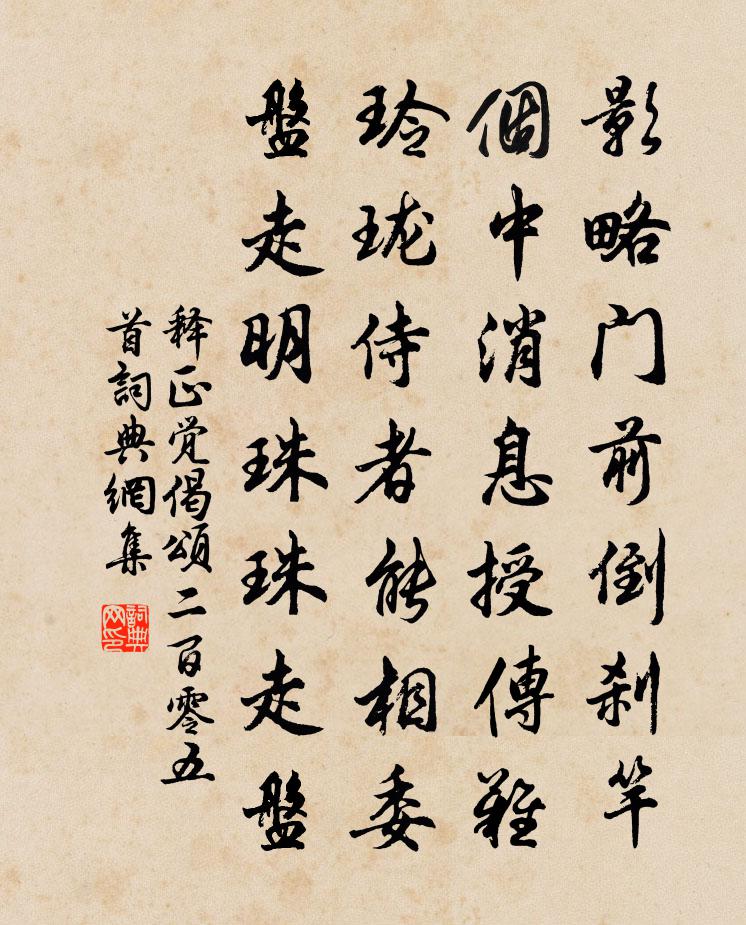 影略门前倒刹竿
個中消息授傳難
玲珑侍者能相委
盤走明珠珠走盤
释正觉偈頌二百零五
首詞典網集
詞典網印